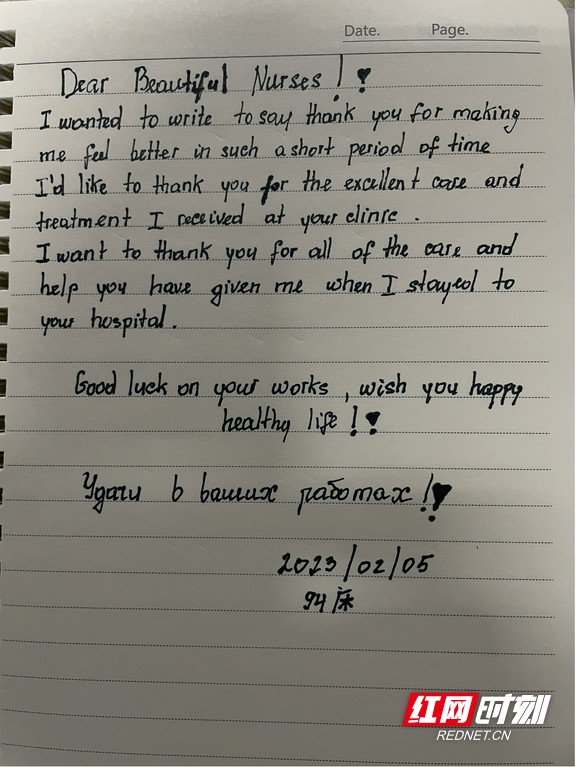 Date. Page.
Dear Beautiful Nurses!
I wanted to write to say thank you for making
me feel better in such a short period of time
I'd like to thank you for the excellent care and
treatment I received at your clinic .
I want to thank you for all of the care and
help you have given me when I stayed to
your hospital.
Good luck on your works , wish you happy
healthy life!
Удачи в ваших работах!
2023/02/05
94床
红网时刻
REDNET.CN